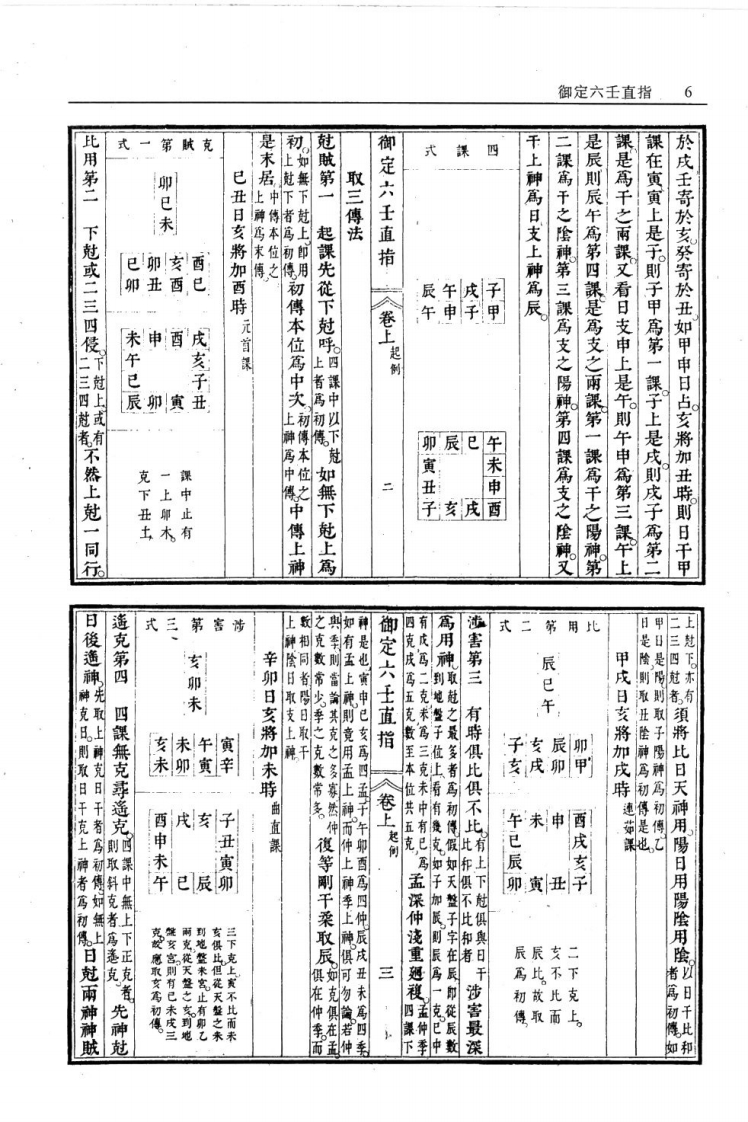 御定六壬直指 6
於戌壬寄於亥癸寄於丑如甲申日占亥將加丑時則日干甲
課在寅寅上是子則子甲爲第一課子上是戌則戌子爲第二
課是爲干之兩課又看日支申上是午則午申爲第三課午上
是辰則辰午爲第四課是爲支之兩課第一課爲干之陽神第
二課爲干之陰神第三課爲支之陽神第四課爲支之陰神又
干上神爲日支上神爲辰
四課式
子甲
戌子
午申
辰午
午未申酉
巳 戌
辰 亥
卯寅丑子
御定六壬直指 卷上 起例 二
取三傳法
尅賊第一 起課先從下尅呼四課中以下尅上者爲初傳如無下尅上爲
初如無下尅上即用上尅下者爲初傳初傳本位爲中次初傳本位之上神爲中傳中傳上神
是末居中傳本位之上神爲末傳
巳丑日亥將加酉時 元首課
克賊第一式
卯巳未
酉巳
亥酉
卯丑
巳卯
戌亥子丑
酉 寅
申 卯
未午巳辰
課中止有
一上卯木
克下丑土
比用第二 下尅或二三四侵下尅上或有二三四尅者不然上尅一同行
上尅下亦有二三四尅者須將比日天神用陽日用陽陰用陰以日干比和者爲初傳如
甲日是陽則取子陽神爲初傳乙日是陰則取丑陰神爲初傳是也
甲戌日亥將加戌時 連茹課
比用第二式
辰巳午
卯甲
辰卯
亥戌
子亥
酉戌亥子
申 丑
未 寅
午巳辰卯
二下克上
亥不比而
辰比故取
辰爲初傳
涉害第三 有時俱比俱不比有上下尅俱與日干比和俱不比和者涉害最深
爲用神取尅之最多者爲初傳假如天盤子字在辰即從辰數到地盤子位上看有幾克如子加辰則辰爲一克巳中
有戊爲二克未爲三克未中有己爲四克戌爲五克數至本位共五克孟深仲淺重廻複孟仲季四課下
神是也寅申巳亥爲四孟子午卯酉爲四仲辰戌丑未爲四季如有孟上神則竟用孟上神而仲上神季上神俱可勿論若仲
與季則當論其克之多寡然仲之克數常少季之克數常多復等剛干柔取辰如克俱在孟俱在仲季而
數相同者陽日取干上神陰日取支上神
御定六壬直指 卷上 起例 三
辛卯日亥將加未時 曲直課
涉害第三式
亥卯未
寅辛
午寅
未卯
亥未
子丑寅卯
亥 辰
戌 巳
酉申未午
三下克上寅不比而未
亥俱比但從天盤之未
到地盤未宮止有卯乙
兩克從天盤之亥到地
盤亥宮則有己未戌三
克故應取亥爲初傳
遙克第四 四課無克尋遙克四課中無上下正克者則取斜克者爲遙克先神尅
日後遙神先取上神克日干者爲初傳如無上神克日則取日干克上神者爲初傳日尅兩神神賊